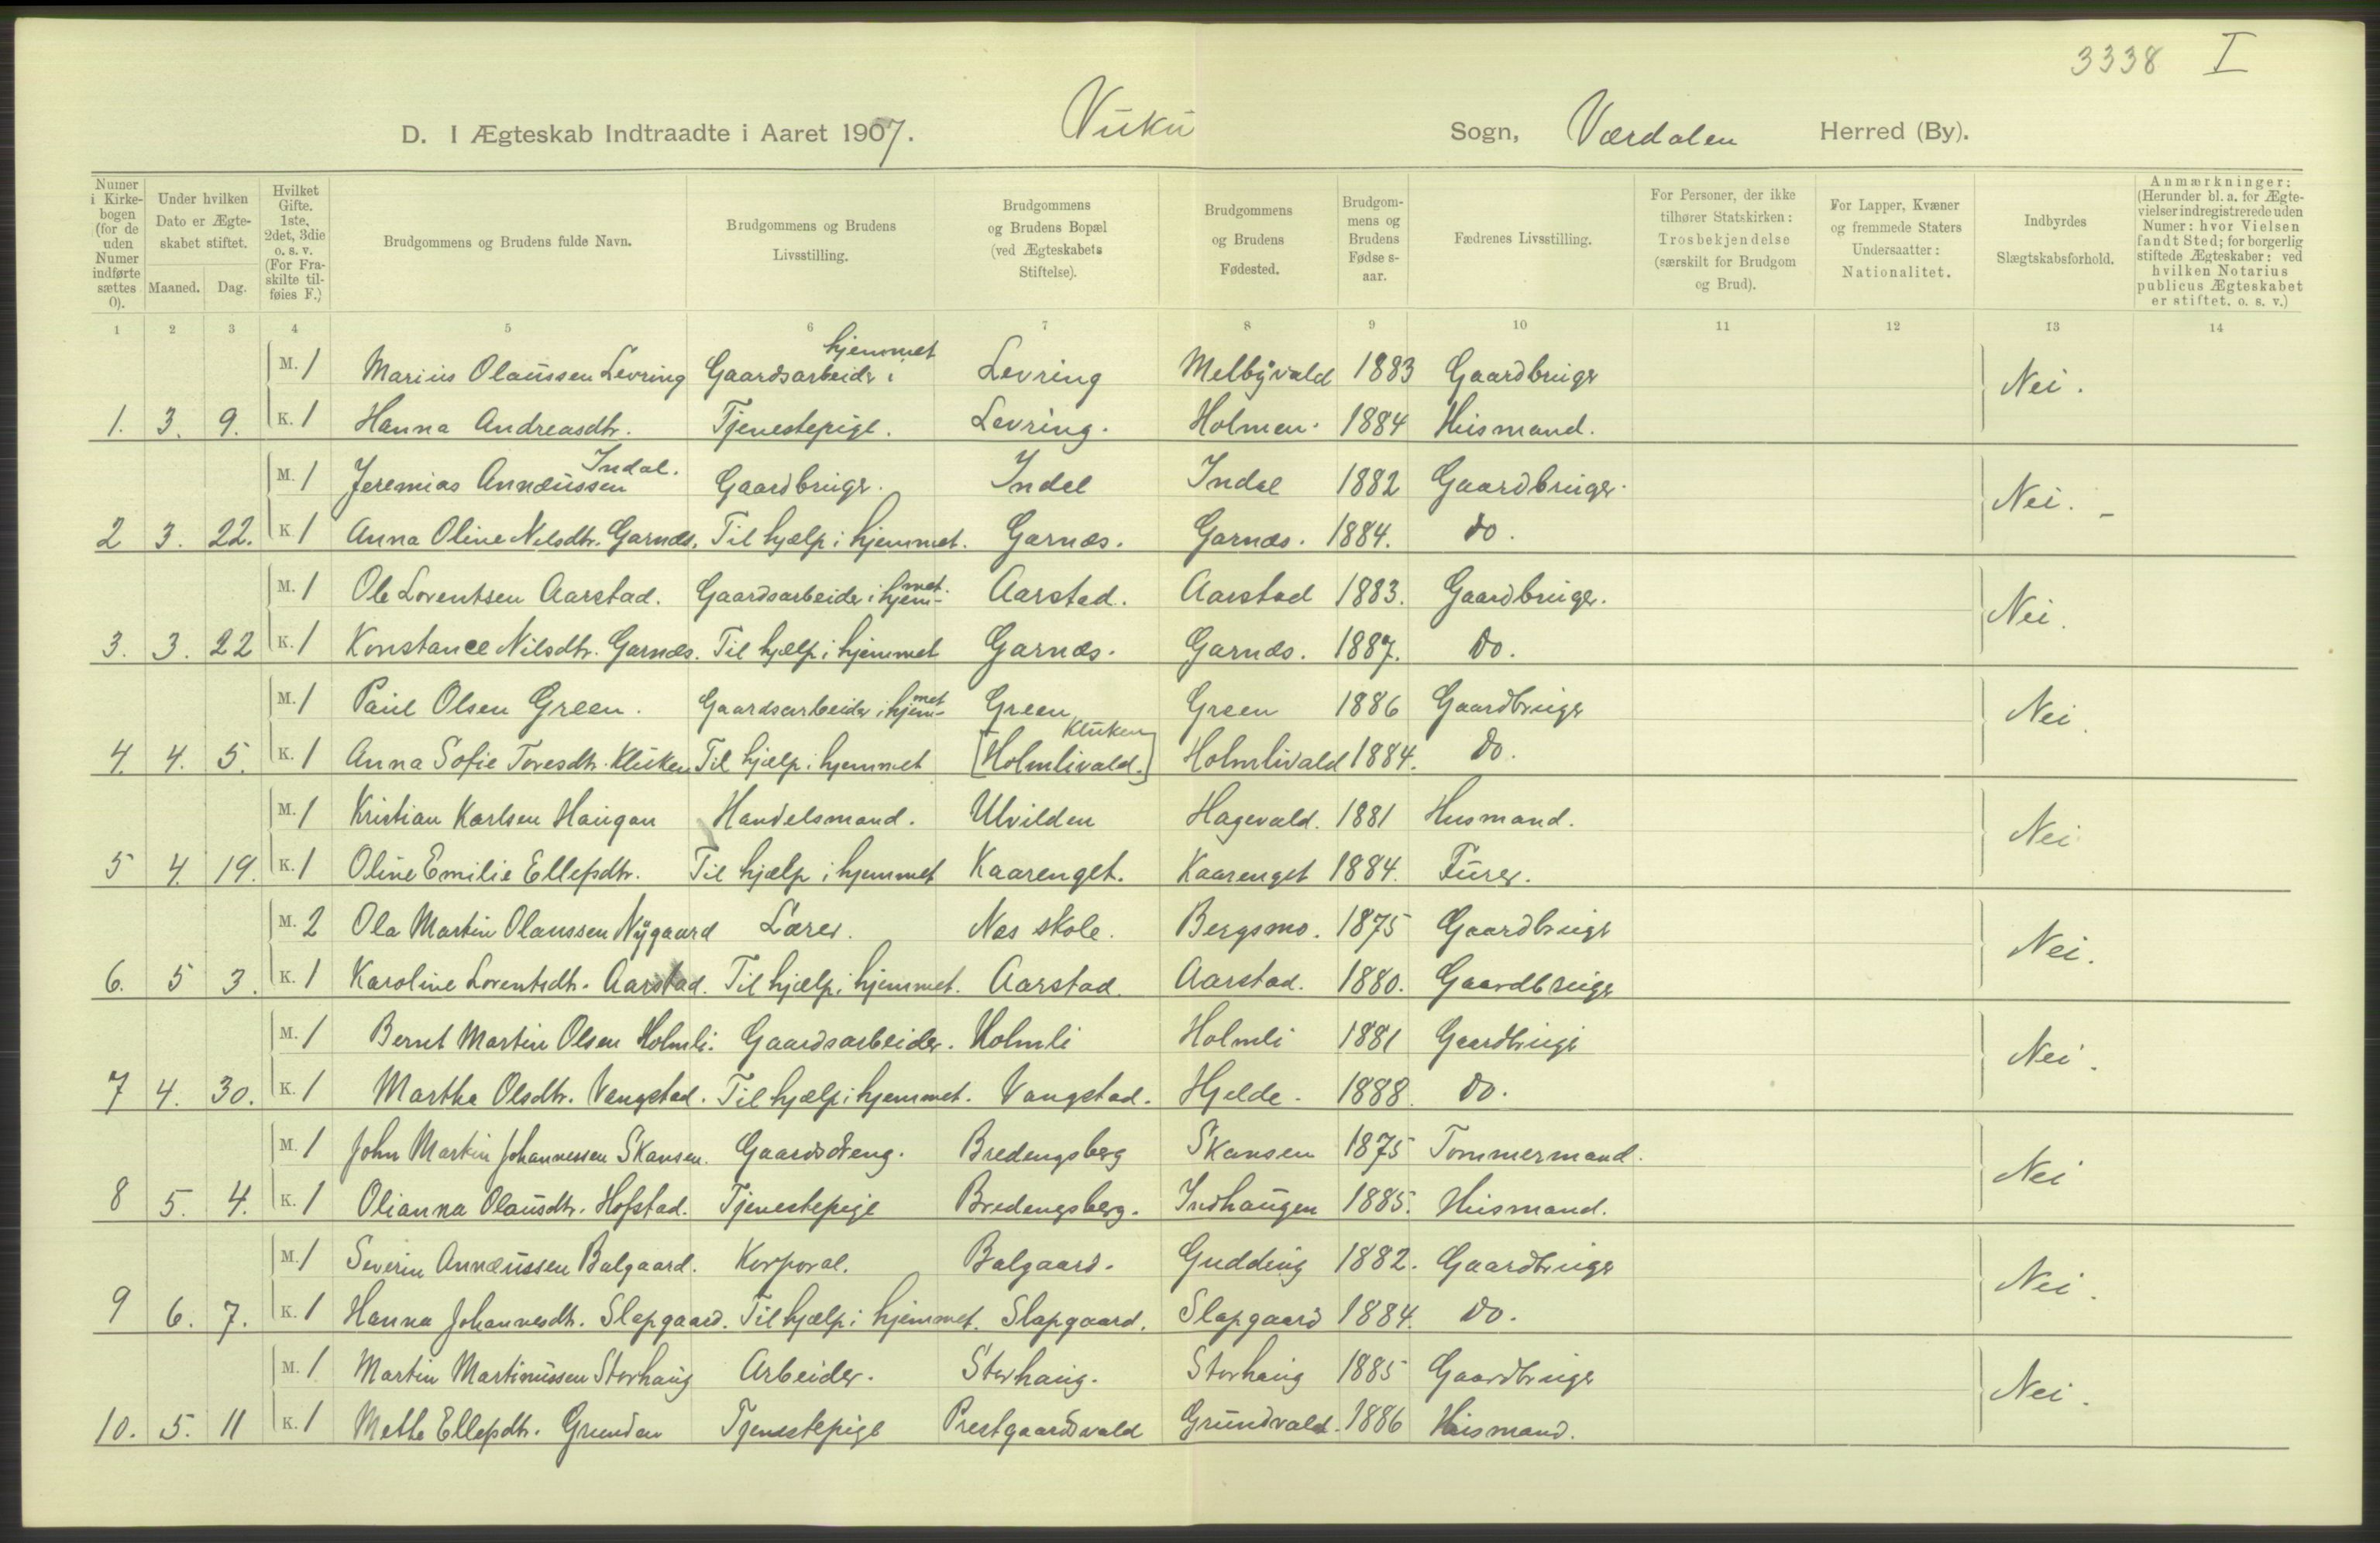 3338 I
D. I Ægteskab Indtraadte i Aaret 1907. Vuku Sogn, Værdalen Herred (By).
Numer i Kirkebogen (for de uden Numer indførte sættes 0). Under hvilken Dato er Ægteskabet stiftet. Maaned. Dag. Hvilket Gifte. 1ste, 2det, 3die o. s. v. (For Fraskilte tilføies F.) Brudgommens og Brudens fulde Navn. Brudgommens og Brudens Livsstilling. Brudgommens og Brudens Bopæl (ved Ægteskabets Stiftelse). Brudgommens og Brudens Fødested. Brudgommens og Brudens Fødselsaar. Fædrenes Livsstilling. For Personer, der ikke tilhører Statskirken: Trosbekjendelse (særskilt for Brudgom og Brud). For Lapper, Kvæner og fremmede Staters Undersaatter: Nationalitet. Indbyrdes Slægtskabsforhold. Anmærkninger: (Herunder bl. a. for Ægtevielser indregistrerede uden Numer: hvor Vielsen fandt Sted; for borgerlig stiftede Ægteskaber: ved hvilken Notarius publicus Ægteskabet er stiftet, o. s. v.)
1 2 3 4 5 6 7 8 9 10 11 12 13 14
M. 1 Marius Olaussen Levring Gaardsarbeider i hjemmet Levring Melbyvald 1883 Gaardbruger Nei.
1. 3. 9. K. 1 Hanna Andreasdtr. Tjenestepige. Levring. Holmen. 1884 Husmand.
M. 1 Jeremias Annæussen Indal. Gaardbruger. Indal Indal 1882 Gaardbruger. Nei. -
2 3. 22. K. 1 Anna Oline Nilsdtr. Garnæs. Til hjælp i hjemmet. Garnæs. Garnæs. 1884. do.
M. 1 Ole Lorentsen Aarstad. Gaardsarbeider i hjemmet. Aarstad. Aarstad 1883. Gaardbruger. Nei.
3. 3. 22 K. 1 Konstance Nilsdtr. Garnæs. Til hjælp i hjemmet Garnæs. Garnæs. 1887. do.
M. 1 Paul Olsen Green. Gaardsarbeider i hjemmet Green Green 1886 Gaardbruger Nei.
4. 4. 5. K. 1 Anna Sofie Toresdtr. Kluken Til hjælp i hjemmet [Holmlivald.] Kluken Holmlivald 1884. do.
M. 1 Kristian Karlsen Haugan Handelsmand. Ulvilden Hagevald. 1881 Husmand. Nei
5 4. 19. K. 1 Oline Emilie Ellefsdtr. Til hjælp i hjemmet Kaarenget. Kaarenget 1884. Furer.
M. 2 Ola Martin Olaussen Nygaard Lærer. Nes skole. Bergsmo. 1875 Gaardbruger Nei.
6. 5 3. K. 1 Karoline Lorentsdtr. Aarstad. Til hjælp i hjemmet. Aarstad. Aarstad. 1880. Gaardbruger
M. 1 Bernt Martin Olsen Holmli. Gaardsarbeider. Holmli Holmli 1881 Gaardbruger Nei.
7 4. 30. K. 1 Martha Olsdtr. Vangstad. Til hjælp i hjemmet. Vangstad. Hjelde. 1888. do.
M. 1 John Martin Johannessen Skansen. Gaardsdreng. Bredengsberg Skansen 1875 Tømmermand. Nei
8 5. 4. K. 1 Olianna Olausdtr. Hofstad. Tjenestepige Bredengsberg. Indhaugen 1885. Husmand.
M. 1 Severin Annæussen Balgaard. Korporal. Balgaard. Gudding 1882. Gaardbruger Nei.
9 6. 7. K. 1 Hanna Johannesdtr. Slapgaard. Til hjælp i hjemmet. Slapgaard. Slapgaard 1884. do.
M. 1 Martin Martinussen Storhaug Arbeider. Storhaug. Storhaug 1885 Gaardbruger Nei.
10. 5. 11 K. 1 Mette Ellefsdtr. Grundan Tjenestepige Prestgaardsvald Grundvald. 1886 Husmand.